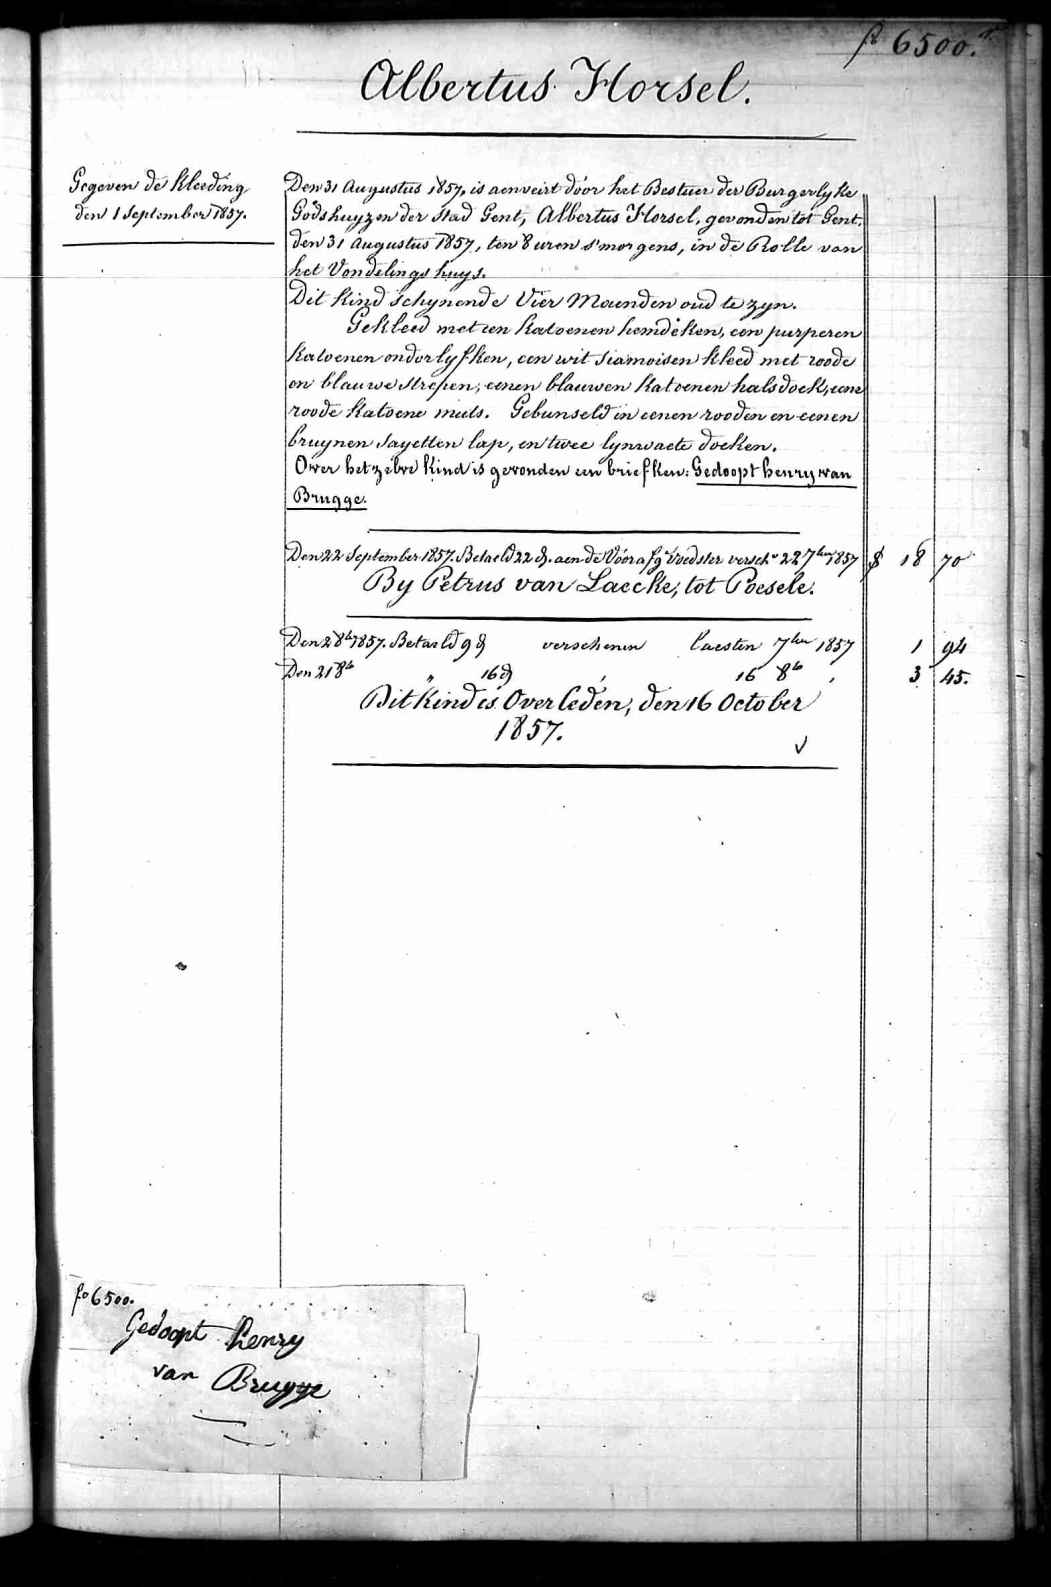 fo 6500.
Albertus Horsel.
Gegeven de kleeding
den 1 September 1857.
Den 31 Augustus 1857, is aenveirt door het Bestuer der Burgerlyke
Godshuyzen der stad Gent, Albertus Horsel, gevonden tot Gent,
den 31 Augustus 1857, ten 8 uren s'morgens, in de Rolle van
het Vondelingshuys.
Dit kind schynende Vier Maenden oud te zyn.
Gekleed met een katoenen hemdeken, een purperen
katoenen onderlyfken, een wit siamoisen kleed met roode
en blauwe strepen, eenen blauwen katoenen halsdoek, eene
roode katoene muts. Gebunseld in eenen rooden en eenen
bruynen sayetten lap, en twee lynwaete doeken.
Over hetzelve kind is gevonden een briefken: Gedoopt henry van
Brugge.
Den 22 September 1857. Betaeld 22 d. aen de Voorafge Voedster versch. 22 7ber 1857 18 70
By Petrus van Laecke, tot Poesele.
Den 2 8b 1857. Betaeld 9 d verschenen laesten 7ber 1857 1 94
Den 21 8b " 16 d 16 8b 3 45.
Dit kind is Overleden, den 16 October
1857.
fo 6500.
Gedoopt henry
van Brugge